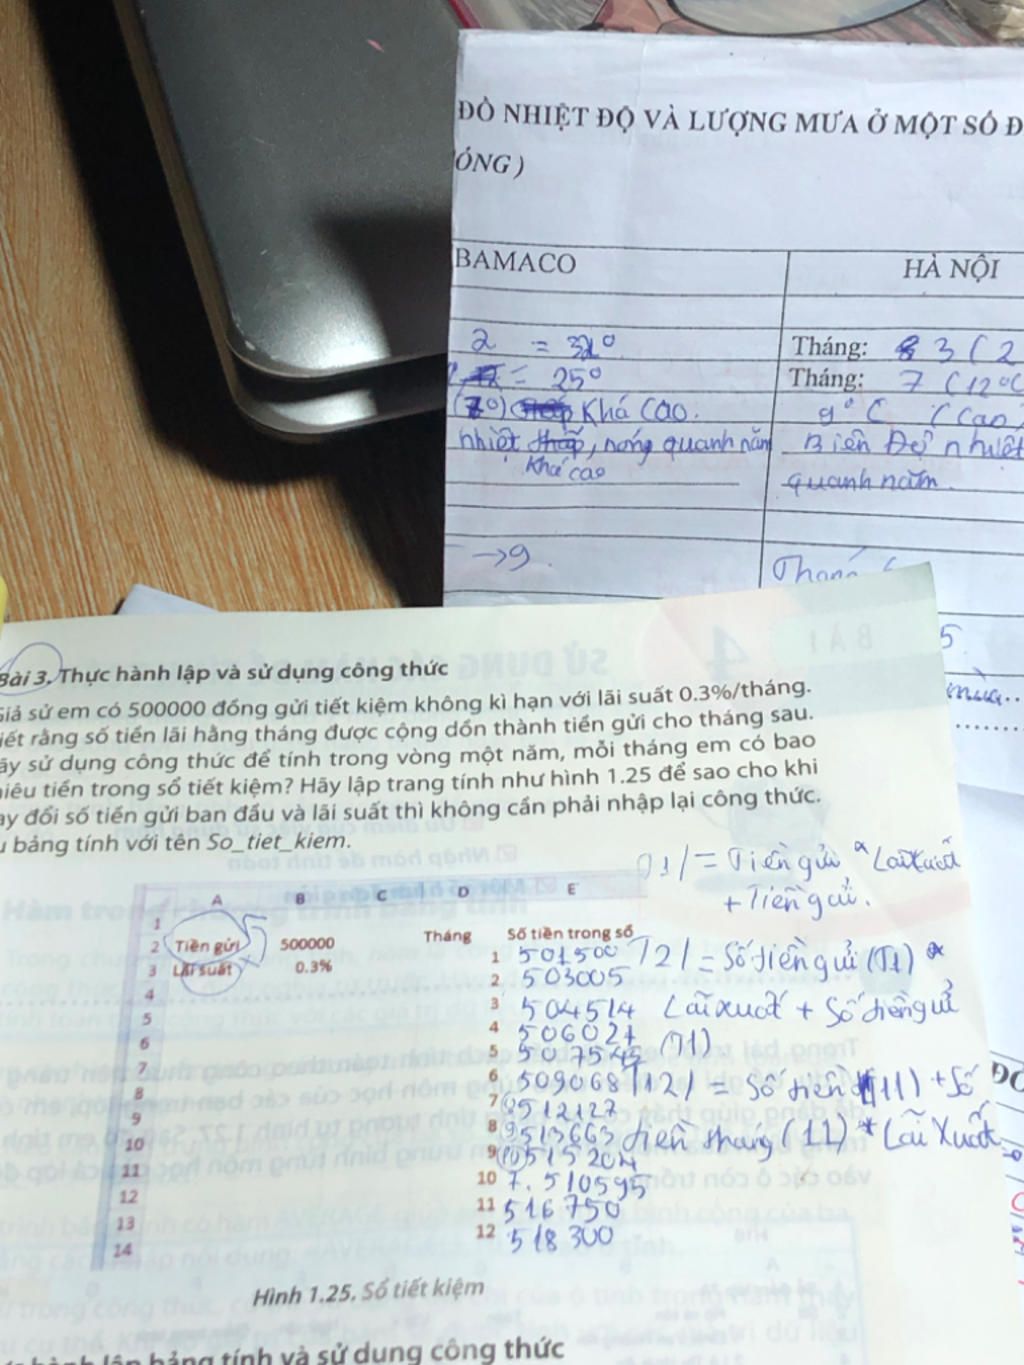 ĐỒ NHIỆT ĐỘ VÀ LƯỢNG MƯA Ở MỘT SỐ Đ
ÓNG )
BAMACO
HÀ NỘI
2 = 32°
Tháng: 3 ( 2
= 25°
Tháng: 7 (12°C
(7°) Khá cao.
9°C ( Cao
nhiệt thấp, nóng quanh năm
Khá cao
Biên Độ nhiệt
quanh năm.
→9.
5
mùa..
Bài 3. Thực hành lập và sử dụng công thức
Giả sử em có 500000 đồng gửi tiết kiệm không kì hạn với lãi suất 0.3%/tháng.
iết rằng số tiền lãi hằng tháng được cộng dồn thành tiền gửi cho tháng sau.
ãy sử dụng công thức để tính trong vòng một năm, mỗi tháng em có bao
hiêu tiền trong sổ tiết kiệm? Hãy lập trang tính như hình 1.25 để sao cho khi
ay đổi số tiền gửi ban đầu và lãi suất thì không cần phải nhập lại công thức.
u bảng tính với tên So_tiet_kiem.
T1/ = Tiền gửi * Lãi xuất
+ Tiền gửi.
A B C D E
1
2 Tiền gửi 500000 Tháng Số tiền trong sổ
3 Lãi suất 0.3% 1 501500
T2/ = Số tiền gửi (T1) *
4 2 503005
5 3 504514
Lãi xuất + Số tiền gửi
6 4 506027
(T1)
7 5 507545
8 6 509068
T12/ = Số tiền (11) + Số
9 7 512127
10 8 513663
tiền tháng (11) * Lãi Xuất
11 9 515204
12 10 7. 510595
13 11 516750
14 12 518300
Hình 1.25. Sổ tiết kiệm
hành lập bảng tính và sử dụng công thức